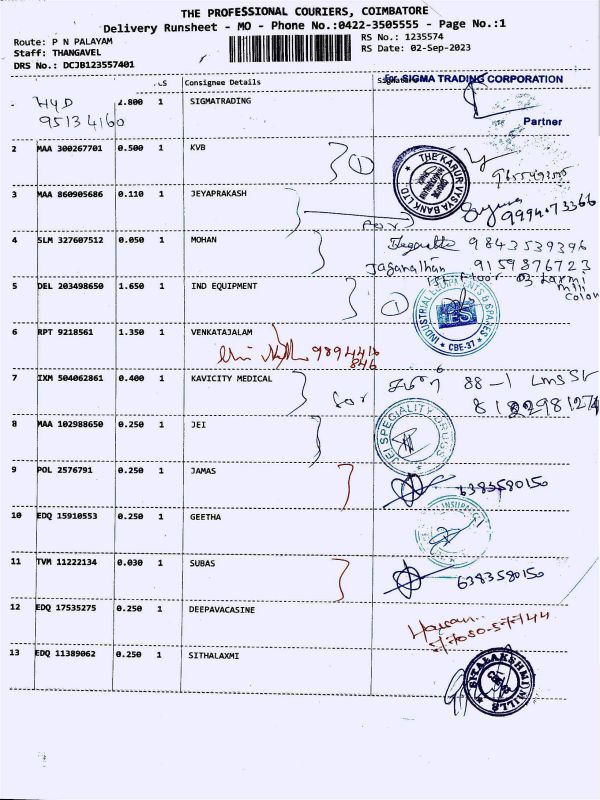 THE PROFESSIONAL COURIERS, COIMBATORE
Delivery Runsheet - MO - Phone No.:0422-3505555 - Page No.:1
Route: P N PALAYAM
Staff: THANGAVEL
DRS No.: DCJB123557401
RS No.: 1235574
RS Date: 02-Sep-2023
Consignee Details
for SIGMA TRADING CORPORATION
HYD 2.800 1 SIGMATRADING
95134160
Partner
2 MAA 300267701 0.500 1 KVB
THE KARUR VYSYA BANK LTD
3 MAA 860905686 0.110 1 JEYAPRAKASH
for
9994073366
4 SLM 327607512 0.050 1 MOHAN
9843539396
Jaganathan 9159876723
1st floor
5 DEL 203498650 1.650 1 IND EQUIPMENT
1
INDUSTRIAL
& SPARES
CBE-37
6 RPT 9218561 1.350 1 VENKATAJALAM
9894416
846
7 IXM 504062861 0.400 1 KAVICITY MEDICAL
for
88-1 LMS St
8 MAA 102988650 0.250 1 JEI
JEI SPECIALITY DRUGS
9 POL 2576791 0.250 1 JAMAS
6383580150
10 EDQ 15910553 0.250 1 GEETHA
11 TVM 11222134 0.030 1 SUBAS
6383580150
12 EDQ 17535275 0.250 1 DEEPAVACASINE
13 EDQ 11389062 0.250 1 SITHALAXMI
SITALAKSHMI MILLS